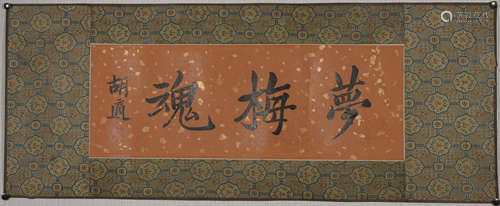 夢梅魂
胡適